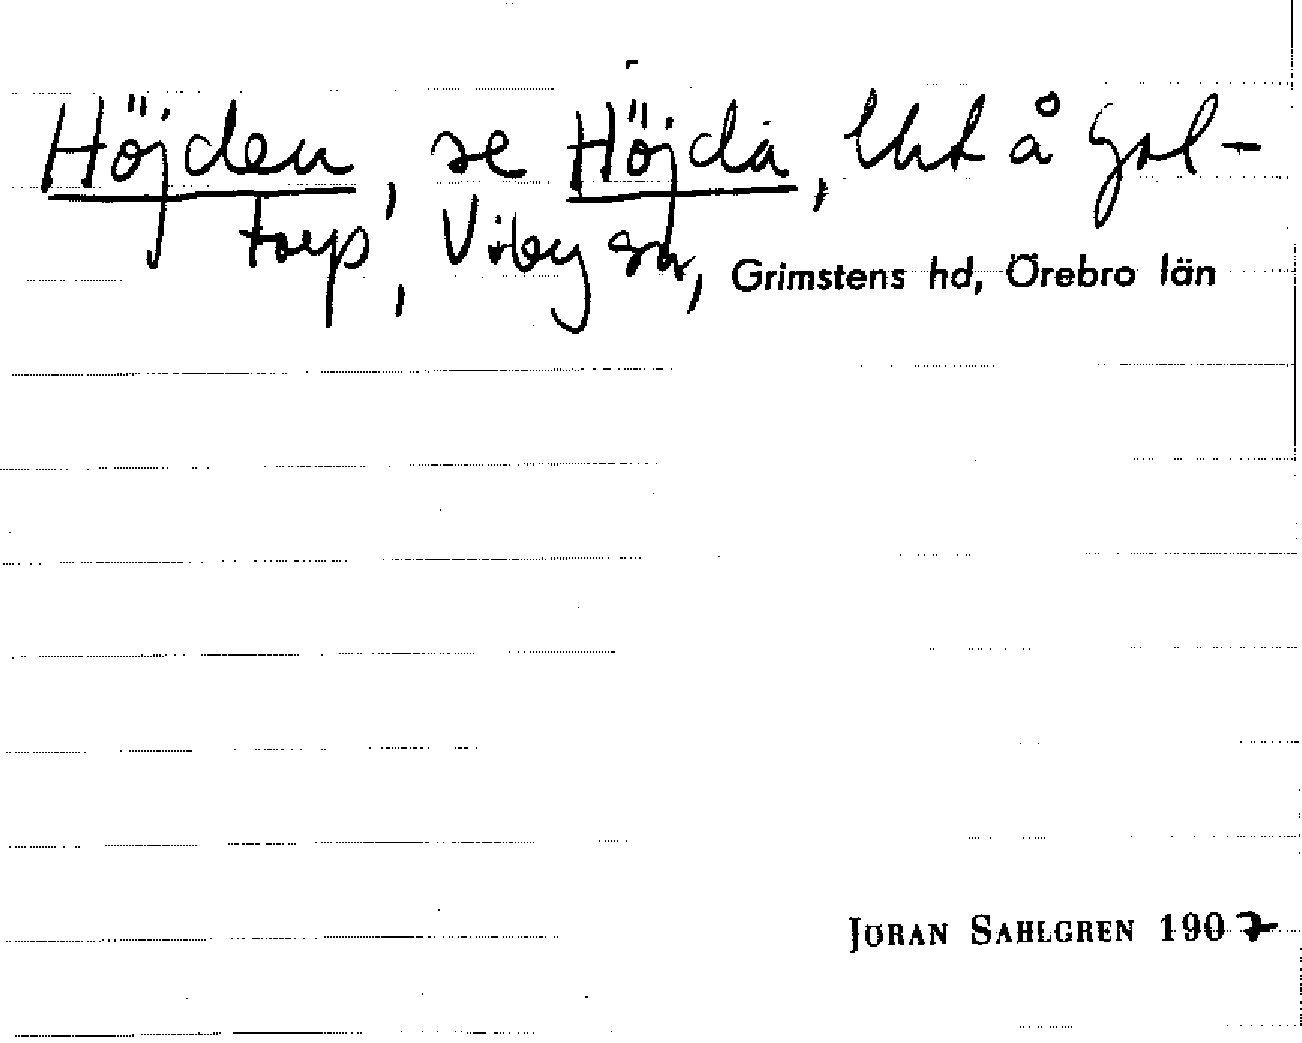 Höjden, se Höjda, lht å Gal-
torp, Viby sn, Grimstens hd, Örebro län
JÖRAN SAHLGREN 1907